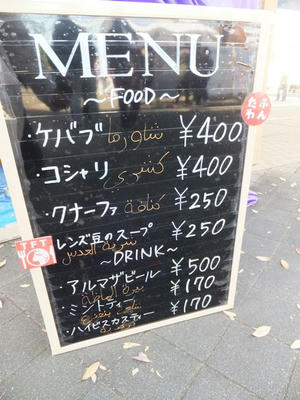 MENU
～FOOD～
・ケバブ شاورما ¥400
・コシャリ كشري ¥400
・クナーファ كنافة ¥250
レンズ豆のスープ ¥250
شربة العدس
～DRINK～
・アルマザビール ¥500
・ミントティー ¥170
・ハイビスカスティー ¥170
TFT
たふわん